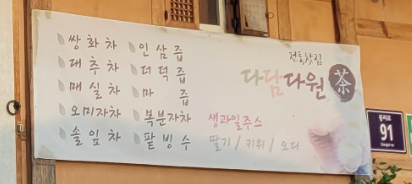 쌍화차 인삼즙
대추차 더덕즙
매실차 마 즙
오미자차 복분자차
솔잎차 팥빙수
생과일주스
딸기 / 키위 / 오디
전통찻집
다담다원 茶
91